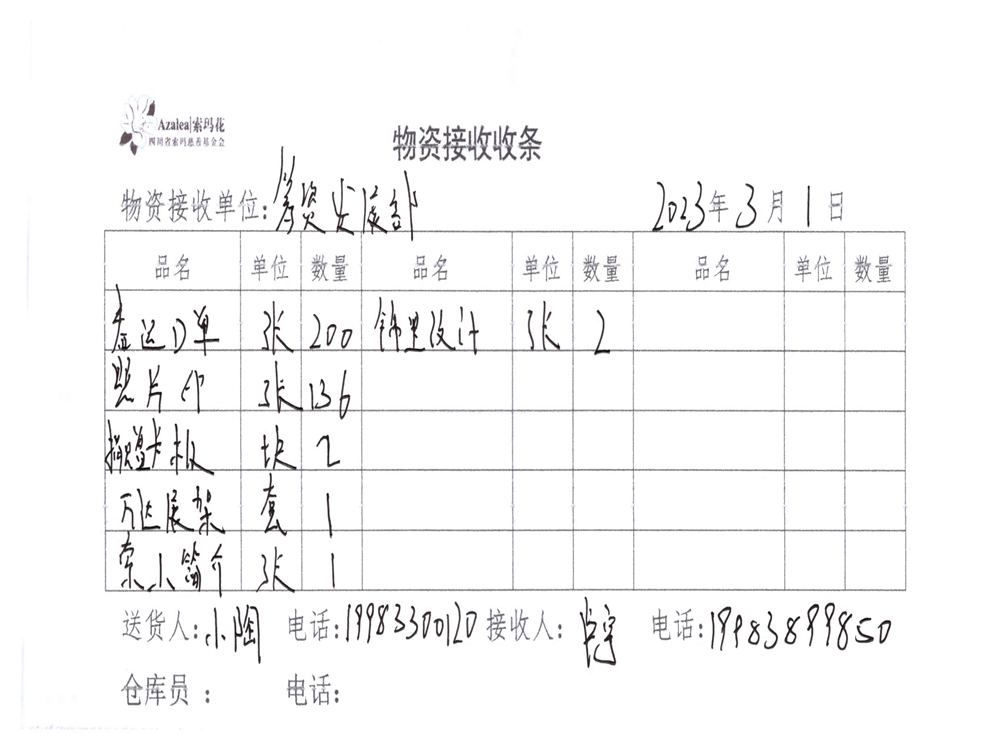 Azalea|索玛花
四川省索玛慈善基金会
物资接收收条
物资接收单位:筹资发展部 2023年3月1日
品名 单位 数量 品名 单位 数量 品名 单位 数量
单 张 200 锦里设计 张 2
照片印 张 136
捐赠卡板 块 2
万达展架 套 1
索小简介 张 1
送货人:小陶 电话:19983300120 接收人: 电话:19983899850
仓库员: 电话: